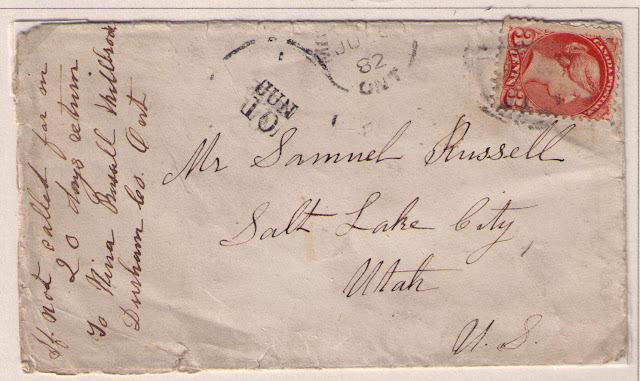 Mr Samuel Russell
Salt Lake City,
Utah
U. S.
If not called for in
20 days return
To Nina Russell Millbrook
Durham Co. Ont
JU
82
ONT
3 CENTS 3